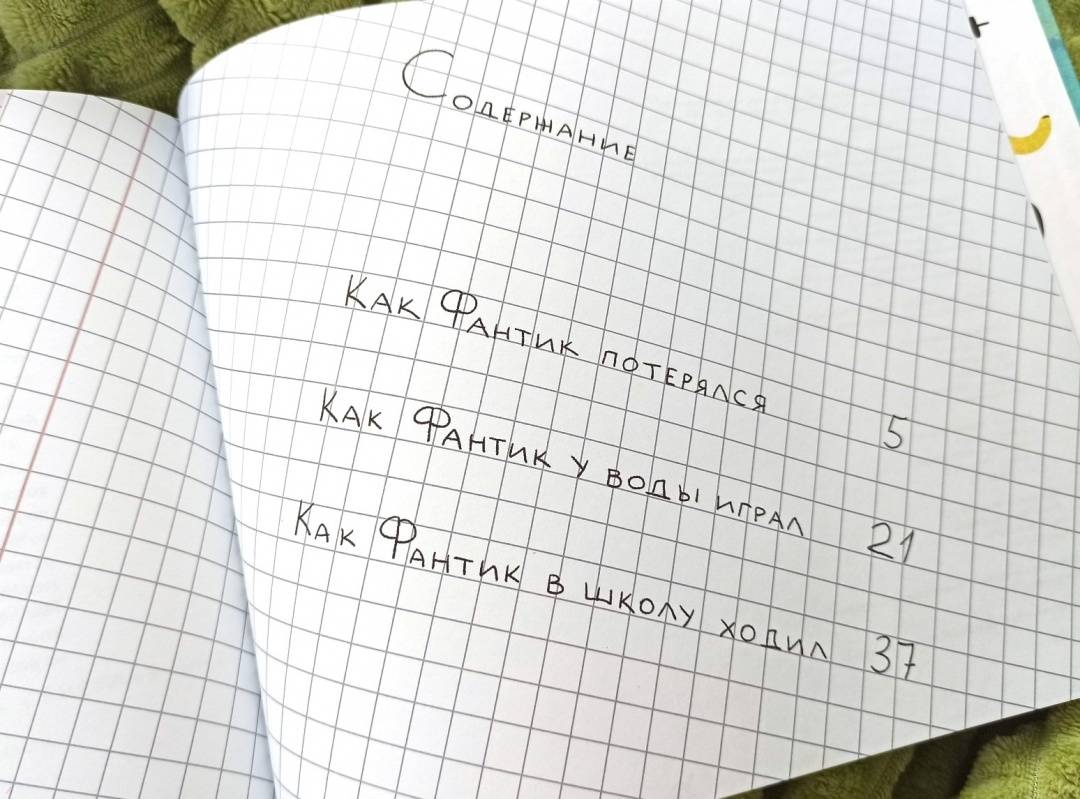 Содержание
Как Фантик потерялся 5
Как Фантик у воды играл 21
Как Фантик в школу ходил 37